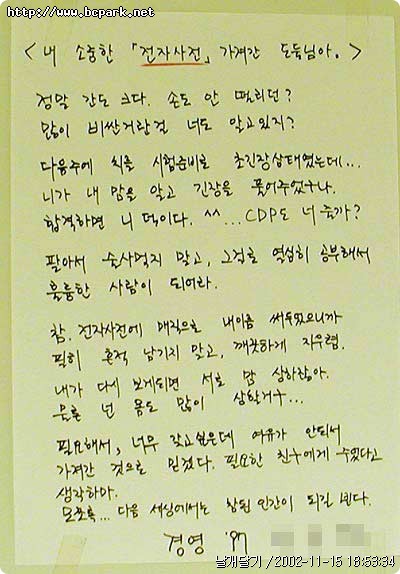 http://www.bcpark.net
< 내 소중한 「전자사전」 가져간 도둑님아. >
정말 간도 크다. 손도 안 떨리던?
많이 비싼거란걸 너도 알고있지?
다음주에 치를 시험준비로 초긴장상태였는데...
니가 내 맘을 알고 긴장을 풀어주었구나.
합격하면 니 덕이다. ^^ ... CDP도 너 줄까?
팔아서 술사먹지 말고, 그걸로 열심히 공부해서
훌륭한 사람이 되어라.
참. 전자사전에 매직으로 내이름 써두었으니까
필히 흔적 남기지 말고, 깨끗하게 지우렴.
내가 다시 보게되면 서로 맘 상하잖아.
물론 넌 몸도 많이 상할거구...
필요해서, 너무 갖고싶은데 여유가 안되서
가져간 것으로 믿겠다. 필요한 친구에게 주었다고
생각하마.
모쪼록... 다음 세상에서는 참된 인간이 되길 빈다.
경영 '97
날개달기 / 2002-11-15 18:53:34